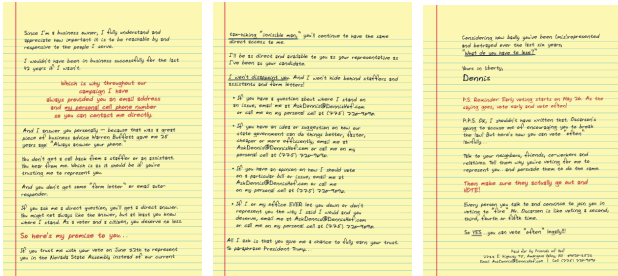 Since I'm a business owner, I fully understand and
appreciate how important it is to be reachable by and
responsive to the people I serve.
I wouldn't have been in business successfully for the last
42 years if I wasn't.
Which is why throughout our
campaign I have
always provided you an email address
and my personal cell phone number
so you can contact me directly.
And I answer you personally - because that was a great
piece of business advice Warren Buffett gave me 25
years ago: "Always answer your phone."
You don't get a call back from a staffer or an assistant.
You hear from me. Which is as it should be if you're
trusting me to represent you.
And you don't get some "form letter" or email auto-
responder.
If you ask me a direct question, you'll get a direct answer.
You might not always like the answer, but at least you know
where I stand. As a voter and a citizen, you deserve no less.
So here's my promise to you...
If you trust me with your vote on June 12th to represent
you in the Nevada State Assembly instead of our current
tax-hiking "invisible man," you'll continue to have the same
direct access to me.
I'll be as direct and available to you as your representative as
I've been as your candidate.
I won't disappoint you. And I won't hide behind staffers and
assistants and form letters!
• If you have a question about where I stand on
an issue, email me at AskDennis@DennisNef.com
or call me on my personal cell at (775)
• If you have an idea or suggestion on how our
state government can do things better, faster,
cheaper or more efficiently, email me at
AskDennis@DennisNef.com or call me on my
personal cell at (775)
• If you have an opinion on how I should vote
on a particular bill or issue, email me at
AskDennis@DennisNef.com or call me
on my personal cell at (775)
• If I or my office EVER let you down or don't
represent you the way I said I would and you
deserve, email me at AskDennis@DennisNef.com
or call me on my personal cell at (775)
All I ask is that you give me a chance to fully earn your trust.
To paraphrase President Trump...
Considering how badly you've been (mis)represented
and betrayed over the last six years,
"What do you have to lose?"
Yours in liberty,
Dennis
P.S. Reminder: Early voting starts on May 26. As the
saying goes, vote early and vote often!
P.P.S. OK, I shouldn't have written that. Oscarson's
going to accuse me of encouraging you to break
the law! But here's how you can vote "often"
lawfully...
Talk to your neighbors, friends, co-workers and
relations. Tell them why you're voting for me to
represent you - and persuade them to do the same.
Then make sure they actually go out and
VOTE!
Every person you talk to and convince to join you in
voting to "fire" Mr. Oscarson is like voting a second,
third, fourth or fifth time.
So YES, you can vote "often" legally!!
Paid for by Friends of Hof